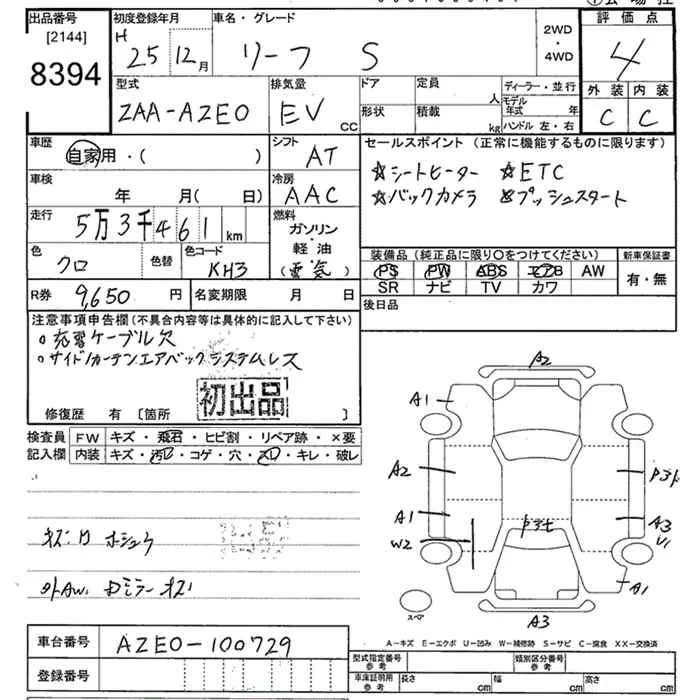 出品番号
[2144]
8394
初度登録年月
H 25 12月
車名・グレード
リーフ S
2WD
・
4WD
評価点
4
外装 内装
C C
型式
ZAA-AZE0
排気量
EV CC
ドア
形状
定員 人
積載 kg
ディーラー・並行
モデル年式 年
ハンドル 左・右
車歴
自家用・( )
シフト
AT
セールスポイント (正常に機能するものに限ります)
☆シートヒーター ☆ETC
☆バックカメラ ☆プッシュスタート
車検
年 月( 日)
冷房
AAC
走行
5万3千461 km
燃料
ガソリン
・
軽油
(電気)
色
クロ
色替
色コード
KH3
装備品 (純正品に限り○をつけてください)
新車保証書
PS PW ABS エアB AW
SR ナビ TV カワ
有・無
R券 9,650 円
名変期限 月 日
後日品
注意事項申告欄 (不具合内容等は具体的に記入して下さい)
○充電ケーブル欠
○サイド/カーテンエアバックシステムレス
初出品
修復歴 有 [箇所 ]
検査員記入欄
FW キズ・飛石・ヒビ割・リペア跡・×要
内装 キズ・汚レ・コゲ・穴・スレ・キレ・破レ
A2
A1
A2
A1
W2
A3
A1
A3
スペア
A-キズ E-エクボ U-凹み W-補修跡 S-サビ C-腐食 XX-交換済
車台番号
AZE0-100729
登録番号
型式指定番号 参考
類別区分番号 参考
車庫証明用 参考
長さ cm 幅 cm 高さ cm